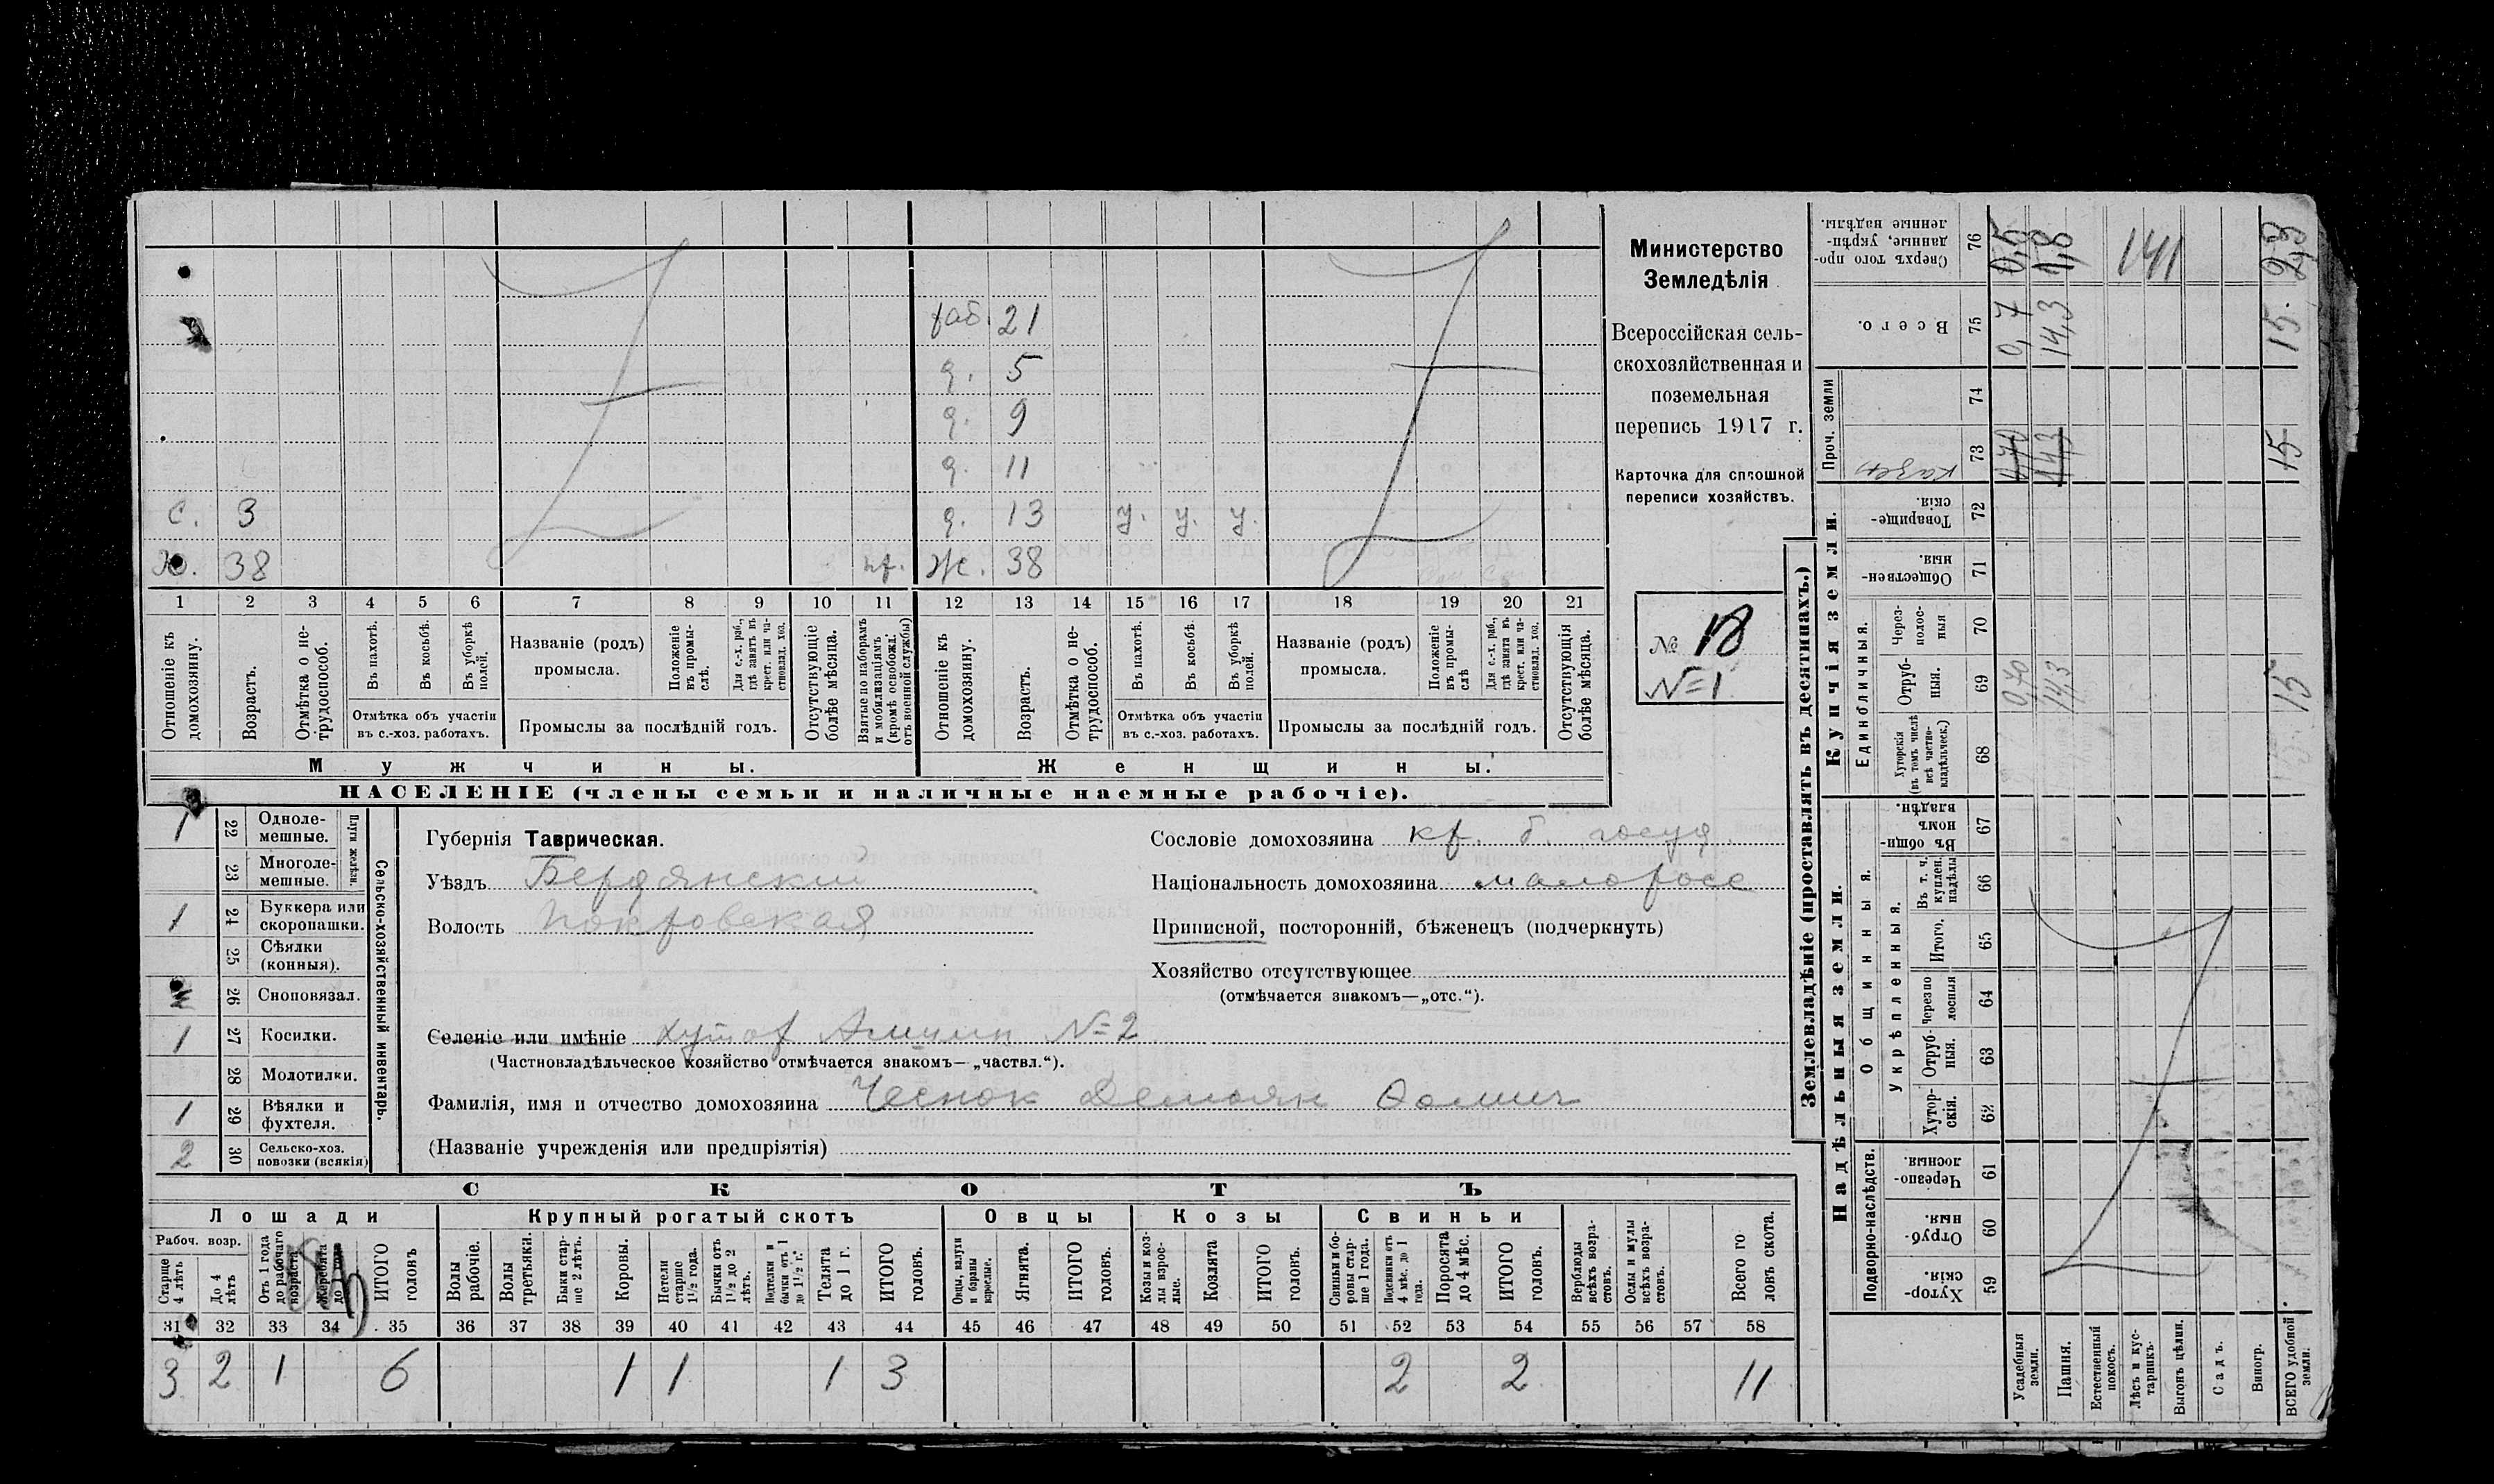 Министерство
Земледѣлія
Всероссійская сель-
скохозяйственная и
поземельная
перепись 1917 г.
Карточка для сплошной
переписи хозяйствъ.
№ 18
№ 1
раб. 21
д. 5
д. 9
д. 11
с. 3 д. 13 у. у. у.
х. 38 Ж. 38
1 2 3 4 5 6 7 8 9 10 11 12 13 14 15 16 17 18 19 20 21
Отношеніе къ домохозяину.
Возрастъ.
Отмѣтка о не-трудоспособ.
Въ пахотѣ.
Въ косьбѣ.
Въ уборкѣ полей.
Отмѣтка объ участіи
въ с.-хоз. работахъ.
Названіе (родъ)
промысла.
Положеніе въ промы-слѣ.
Для с.-х. раб., гдѣ занятъ въ крест. или ча-стновлад. хоз.
Промыслы за послѣдній годъ.
Отсутствующіе болѣе мѣсяца.
Взятые по наборамъ и мобилизаціямъ (кромѣ освобожд. отъ военной службы)
Отношеніе къ домохозяину.
Возрастъ.
Отмѣтка о не-трудоспособ.
Въ пахотѣ.
Въ косьбѣ.
Въ уборкѣ полей.
Отмѣтка объ участіи
въ с.-хоз. работахъ.
Названіе (родъ)
промысла.
Положеніе въ промы-слѣ
Для с.-х. раб., гдѣ занята въ крест. или ча-стновлад. хоз.
Промыслы за послѣдній годъ.
Отсутствующія болѣе мѣсяца.
Мужчины. Женщины.
НАСЕЛЕНІЕ (члены семьи и наличные наемные рабочіе).
Сельско-хозяйственный инвентарь.
Плуги желѣзн.
1 22 Одноле-мешные.
23 Многоле-мешные.
1 24 Буккера или скоропашки.
25 Сѣялки (конныя).
26 Сноповязал.
1 27 Косилки.
28 Молотилки.
1 29 Вѣялки и фухтеля.
2 30 Сельско-хоз. повозки (всякія)
Губернія Таврическая.
Уѣздъ Бердянский
Волость Покровская
Сословіе домохозяина кр. б. госуд.
Національность домохозяина малоросс
Приписной, посторонній, бѣженецъ (подчеркнуть)
Хозяйство отсутствующее
(отмѣчается знакомъ—„отс.“).
Селеніе или имѣніе хутор №2
(Частновладѣльческое хозяйство отмѣчается знакомъ— „частвл.“).
Фамилія, имя и отчество домохозяина Чеснок Демьян Ѳомич
(Названіе учрежденія или предпріятія)
СКОТЪ
Лошади Крупный рогатый скотъ Овцы Козы Свиньи
Рабоч. возр.
Старше 4 лѣтъ
До 4 лѣтъ
Отъ 1 года до рабочаго возраста
Жеребята до года
ИТОГО головъ
Волы рабочіе.
Волы третьяки.
Быки стар-ше 2 лѣтъ.
Коровы.
Нетели старше 1½ года.
Бычки отъ 1½ до 2 лѣтъ.
Подтелки и бычки отъ 1 до 1½ г.
Телята до 1 г.
ИТОГО головъ.
Овцы, валухи и бараны взрослые.
Ягнята.
ИТОГО головъ.
Козы и коз-лы взрос-лые.
Козлята
ИТОГО головъ.
Свиньи и бо-ровы стар-ше 1 года.
Подсвинки отъ 4 мѣс. до 1 года.
Поросята до 4 мѣс.
ИТОГО головъ.
Верблюды всѣхъ возра-стовъ.
Ослы и мулы всѣхъ возра-стовъ.
Всего го-ловъ скота.
31 32 33 34 35 36 37 38 39 40 41 42 43 44 45 46 47 48 49 50 51 52 53 54 55 56 57 58
3 2 1 6 1 1 1 3 2 2 11
Землевладѣніе (проставлять въ десятинахъ.)
Надѣльныя земли. Купчія земли.
Подворно-наслѣдств.
Общинныя.
Укрѣпленныя.
Единоличныя.
Проч. земли
Сверхъ того про-данные, укрѣп-ленные надѣлы. 76 0,5 1,8 141 2,3
Всего. 75 0,7 14,3 15.
74
казен 73 14,3 15
Товарище-скія. 72
Обществен-ныя. 71
Через-полос-ныя 70
Отруб-ныя. 69 0,70 14,3 15
Хуторскія (въ томъ числѣ всѣ частно-владѣльческ.) 68
Въ общин-номъ владѣн. 67
Въ т. ч. куплен. надѣлы 66
Итого. 65
Черезпо-лосныя 64
Отруб-ныя. 63
Хутор-скія. 62
Черезпо-лосныя. 61
Отруб-ныя. 60
Хутор-скія. 59
Усадебныя земли.
Пашня.
Естественный покосъ.
Лѣсъ и кус-тарникъ.
Выгонъ цѣлин.
Садъ.
Виногр.
ВСЕГО удобной земли.